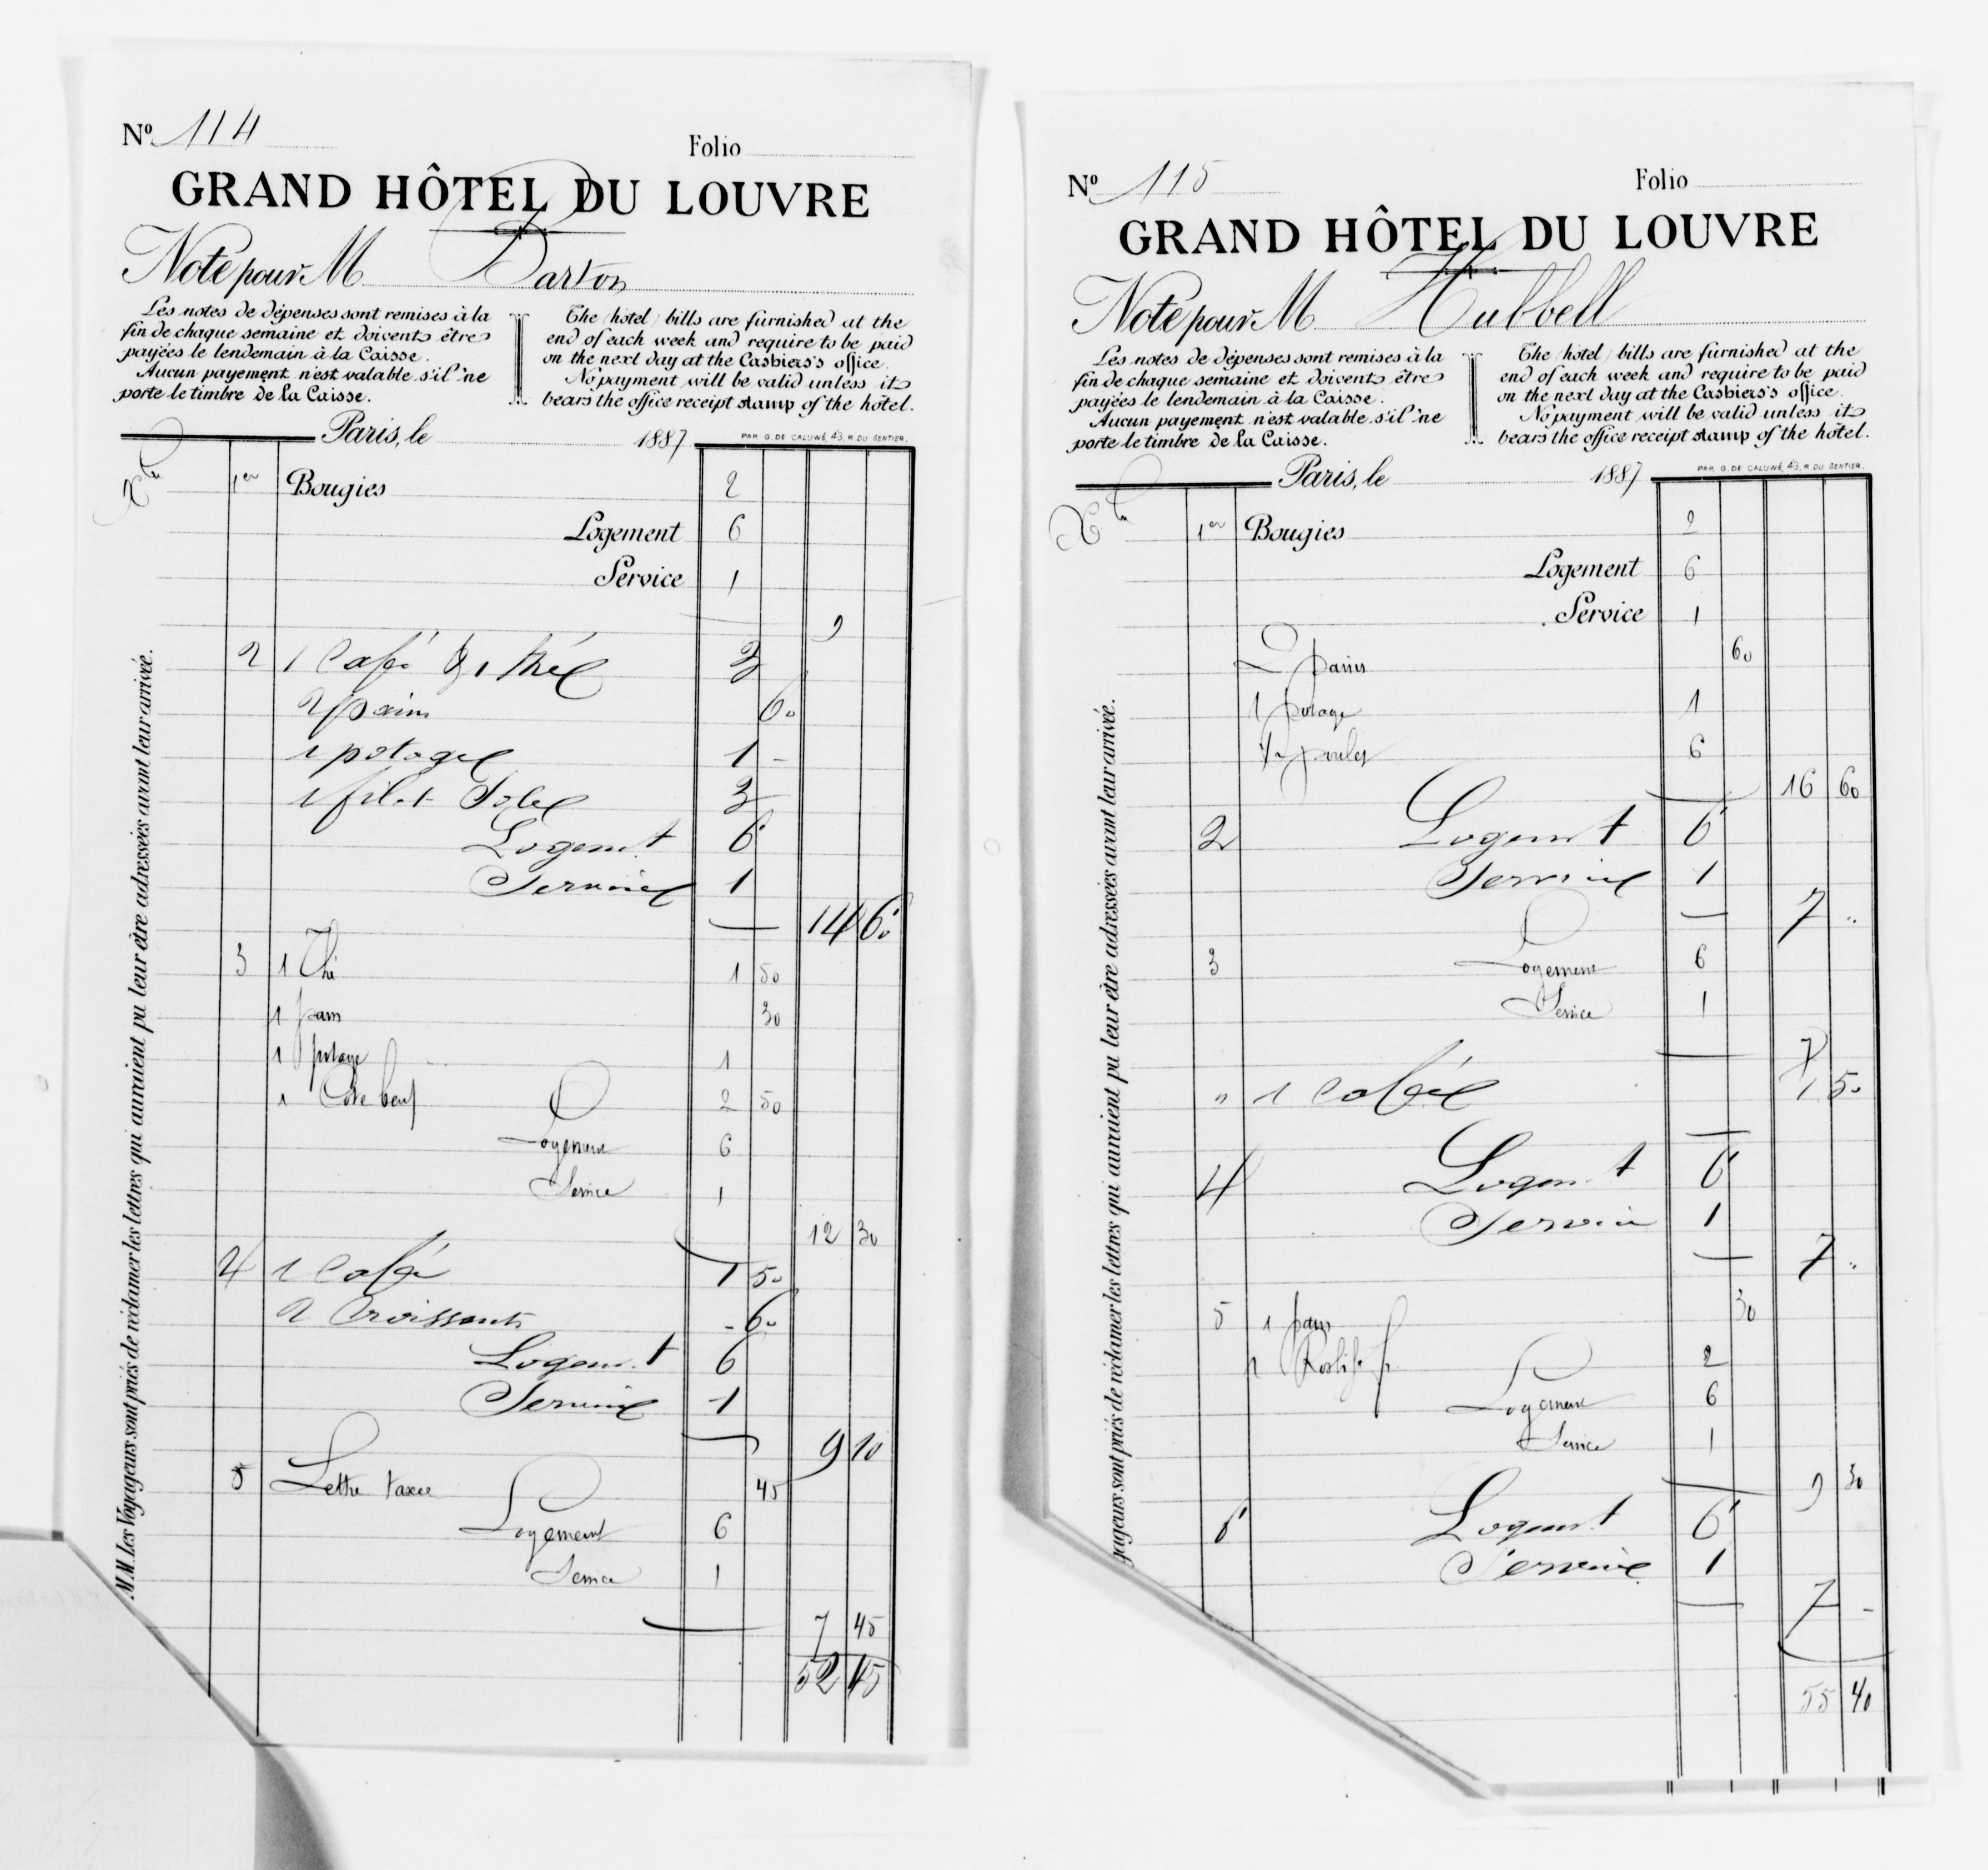 Nº 114
Folio
GRAND HÔTEL DU LOUVRE
Note pour M Barton
Les notes de dépenses sont remises à la
fin de chaque semaine et doivent être
payées le lendemain à la Caisse.
Aucun payement n'est valable s'il ne
porte le timbre de la Caisse.
The (hôtel) bills are furnished at the
end of each week and require to be paid
on the next day at the Casbiers's office.
No payment will be valid unless it
bears the office receipt stamp of the hôtel.
Paris, le 1887
PAR G. DE CALUWÉ, 43, R. DU SENTIER.
M.M. Les Voyageurs sont priés de réclamer les lettres qui auraient pu leur être adressées avant leur arrivée.
1er Bougies 2
Logement 6
Service 1
9
2 1 Café & 1 thé 3
2 pains 60
1 potage 1 -
1 filet Sole 3
Logemt 6
Service 1
14 60
3 1 Thé 1 50
1 pain 30
1 potage 1
1 Cote beuf 2 50
Logement 6
Service 1
12 30
4 1 Café 1 50
2 Croissants - 60
Logemt 6
Service 1
9 10
5 Lettre taxee 45
Logement 6
Service 1
7 45
52 45
Nº 115
Folio
GRAND HÔTEL DU LOUVRE
Note pour M Hubbell
Les notes de dépenses sont remises à la
fin de chaque semaine et doivent être
payées le lendemain à la Caisse.
Aucun payement n'est valable s'il ne
porte le timbre de la Caisse.
The (hôtel) bills are furnished at the
end of each week and require to be paid
on the next day at the Casbiers's office.
No payment will be valid unless it
bears the office receipt stamp of the hôtel.
Paris, le 1887
PAR G. DE CALUWÉ, 43, R. DU SENTIER.
yageurs sont priés de réclamer les lettres qui auraient pu leur être adressées avant leur arrivée.
1er Bougies 2
Logement 6
Service 1
2 pains 60
1 potage 1
1/2 poulet 6
16 60
2 Logemt 6
Service 1
7 ..
3 Logement 6
Service 1
7
" 1 Café 1 50
4 Logemt 6
Service 1
7 ..
5 1 pain 30
1 Rosbif f. 2
Logement 6
Service 1
9 30
6 Logemt 6
Service 1
7 -
55 40